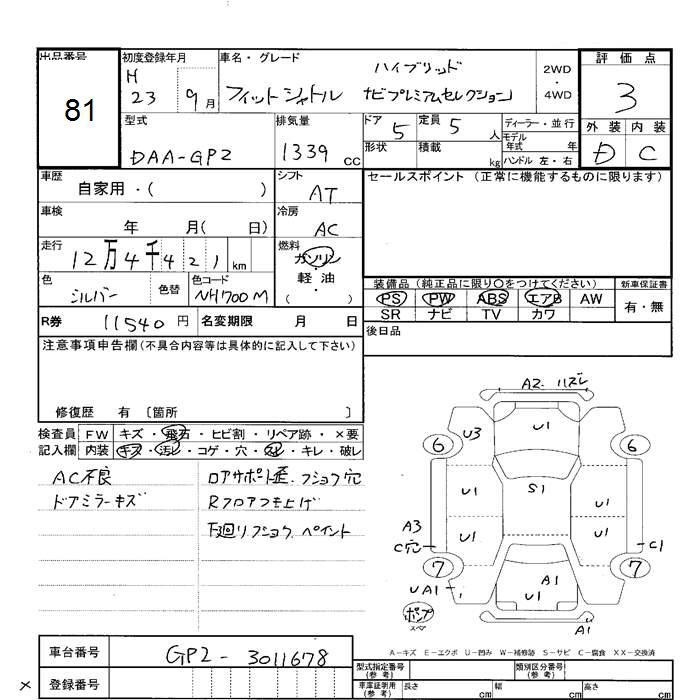 出品番号 初度登録年月 車名・グレード 評価点
81
H 23 9月 フィットシャトル ハイブリッド ナビプレミアムセレクション 2WD・4WD 3
型式 排気量 ドア 定員 ディーラー・並行 外装 内装
DAA-GP2 1339 cc 5 5人 モデル年式 年 D C
形状 積載 kg ハンドル 左・右
車歴 自家用・( ) シフト AT セールスポイント(正常に機能するものに限ります)
車検 年 月( 日) 冷房 AC
走行 12万4千421 km 燃料 ガソリン・軽油・( )
色 シルバー 色替 色コード NH700M
装備品(純正品に限り○をつけてください) 新車保証書
PS PW ABS エアB AW 有・無
SR ナビ TV カワ
R券 11540円 名変期限 月 日 後日品
注意事項申告欄(不具合内容等は具体的に記入して下さい)
修復歴 有 〔箇所 〕
検査員 FW キズ・飛石・ヒビ割・リペア跡・×要
記入欄 内装 キズ・汚レ・コゲ・穴・・キレ・破レ
AC不良 ロアサポート歪、フショク穴
ドアミラーキズ Rフロアつき上げ
下回リフショク、ペイント
A2 ハズレ
U1
U3
6 6
S1
U1 U1
A3 U1 U1
C穴 C1
7 7
UA1 A1 U1
ポンプ スペア
A1
A-キズ E-エクボ U-凹み W-補修跡 S-サビ C-腐食 XX-交換済
車台番号 GP2-3011678
型式指定番号(参考) 類別区分番号(参考)
× 登録番号
車庫証明用(参考) 長さ cm 幅 cm 高さ cm